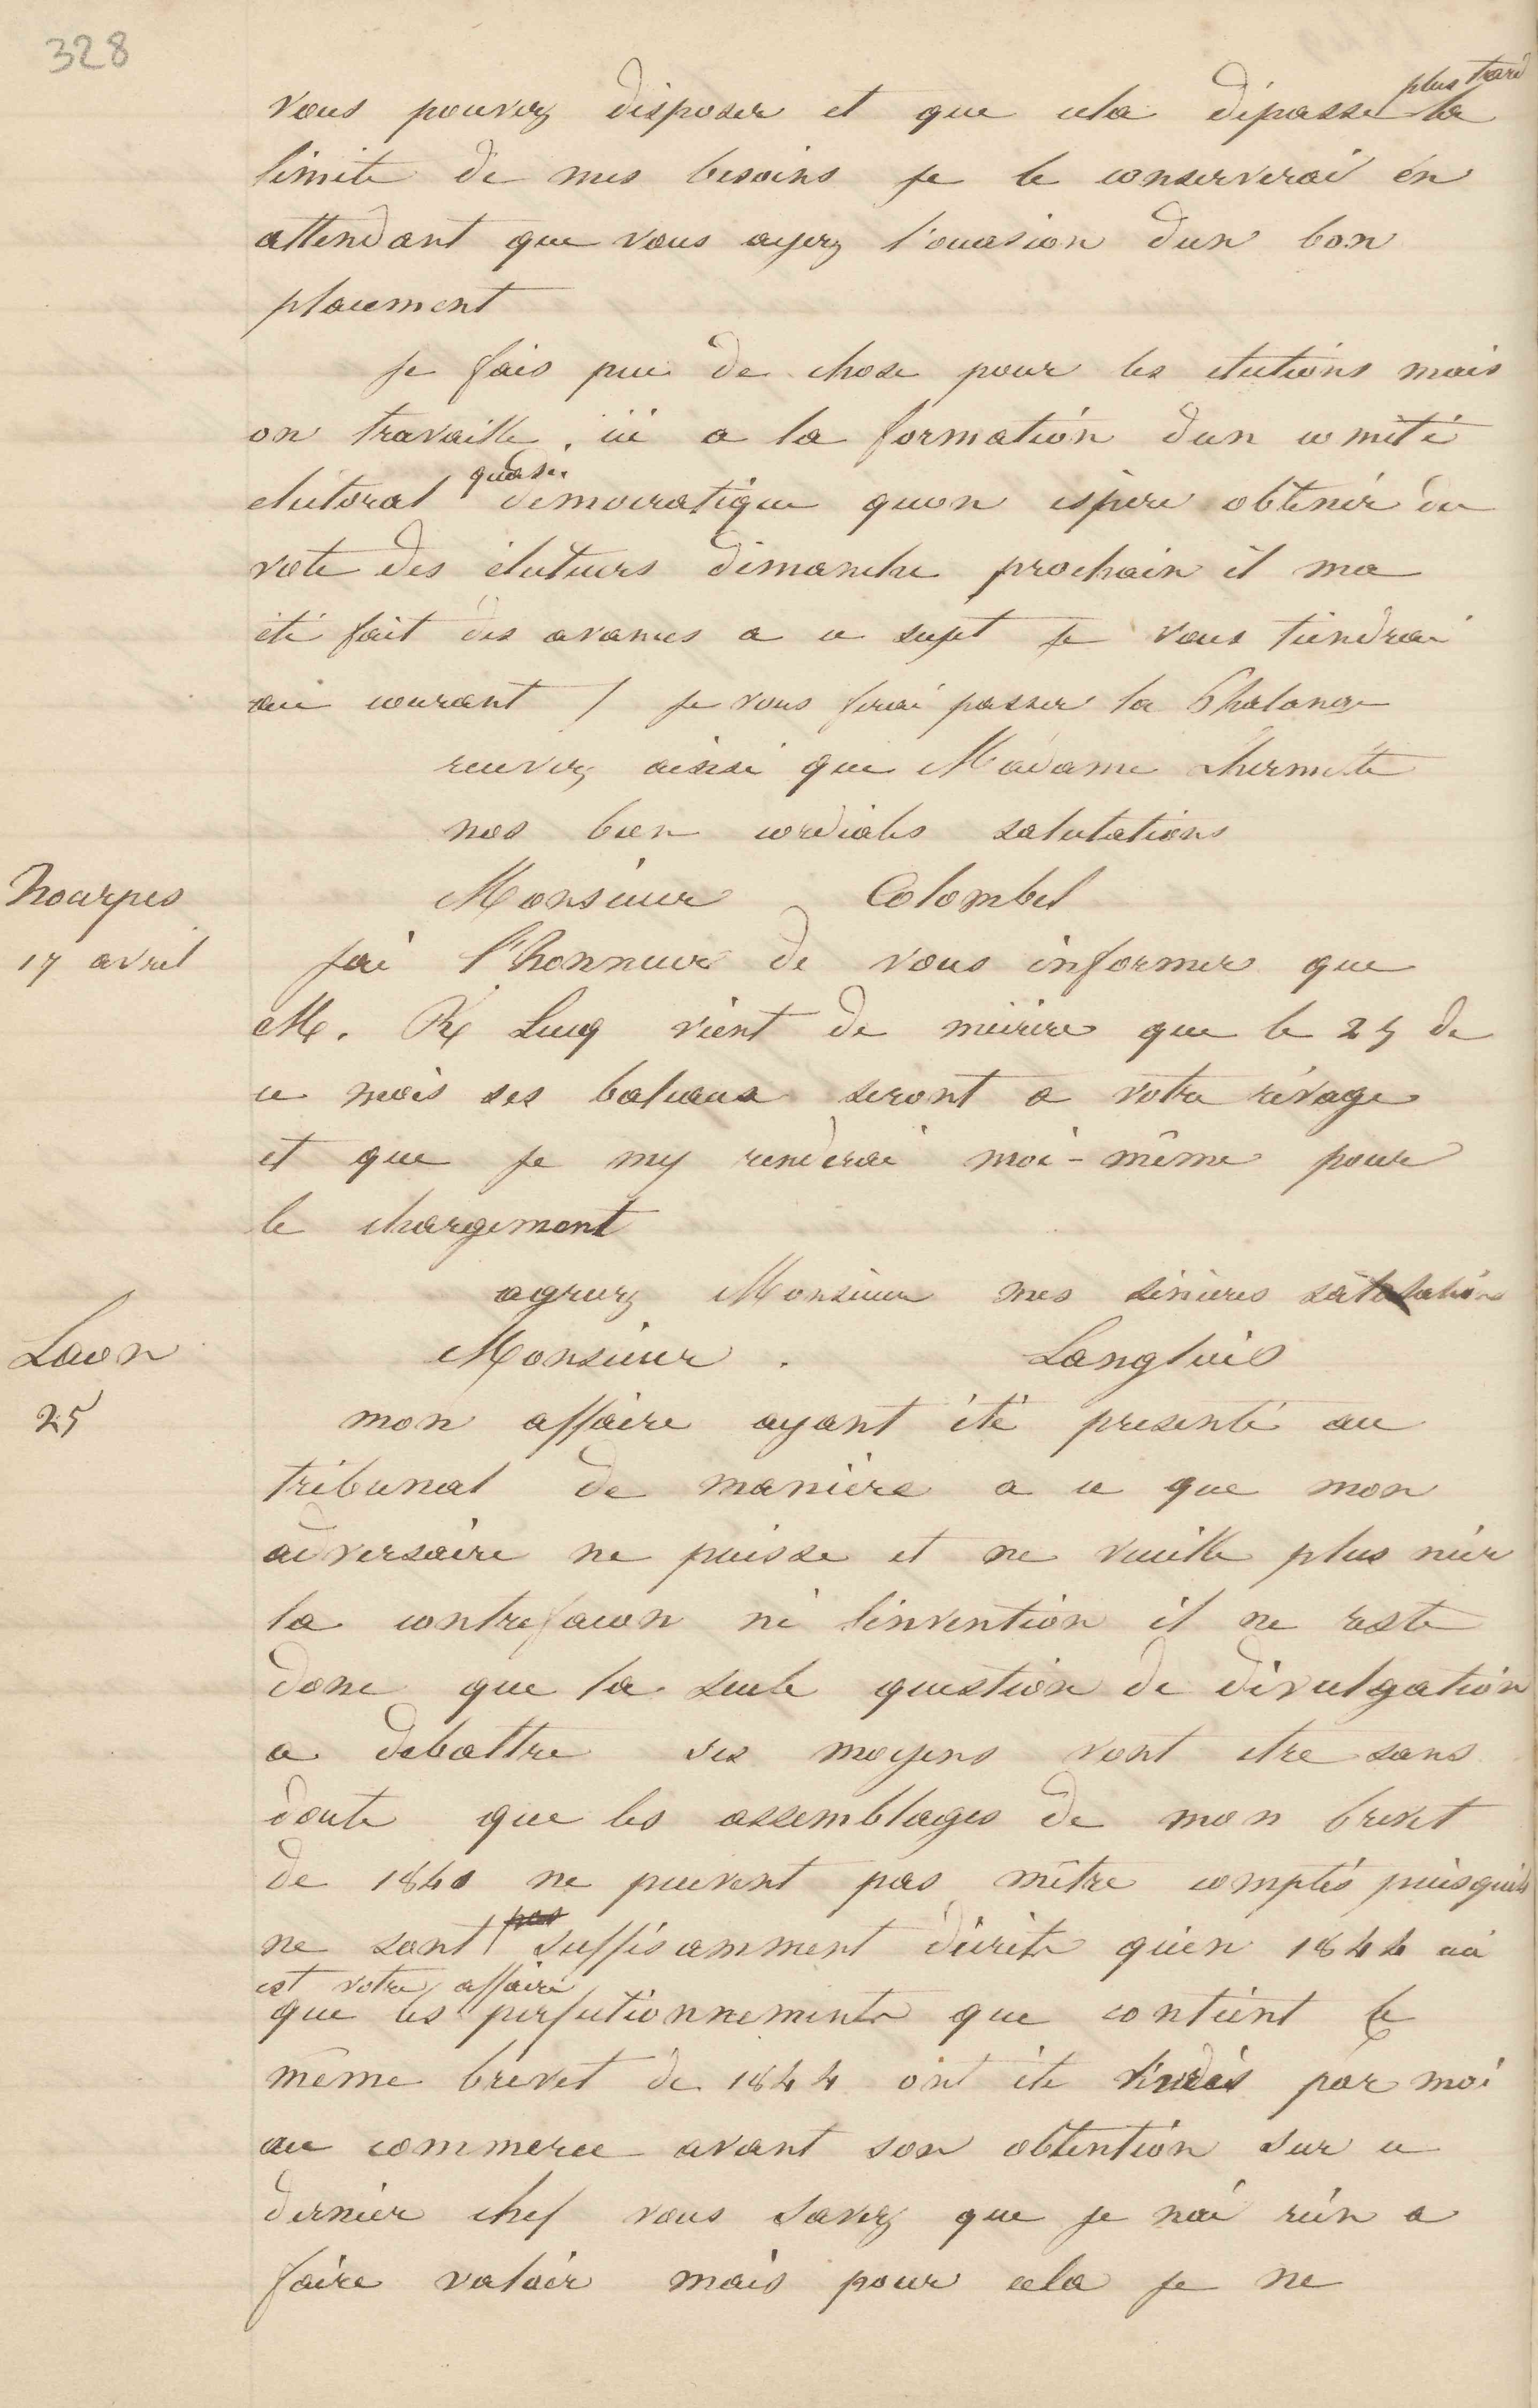 328
plus tard
vous pouvez disposer et que cela dépasse la
limite de mes besoins je le conserverai en
attendant que vous ayez l'occasion dun bon
placement
je fais peu de chose pour les elections mais
on travaille ici a la formation dun comité
quasi
electoral democratique quon espere obtenir du
vote des électeurs dimanche prochain il ma
été fait des avances a ce sujet je vous tiendrai
au courant / je vous ferai passer la Phalange
recevez ainsi que Madame Lhermitte
nos bien cordiales salutations
Monsieur Colombel
17 avril
jai l'honneur de vous informer que
M. Lucq vient de mécrire que le 25 de
ce mois ses bateaux seront a votre rivage
et que je my renderai moi-même pour
le chargement
agreez Monsieur mes sincères salutations
Laon
Monsieur Langlois
25
mon affaire ayant été presenté au
tribunal de manière a ce que mon
adversaire ne puisse et ne veuille plus nier
la contrefacon ni linvention il ne reste
donc que la seule question de divulgation
a debattre ses moyens vont etre sans
doute que les assemblages de mon brevet
de 1840 ne peuvent pas mêtre comptés puisquils
pas
ne sont suffisamment décrits quen 1844 ceci
est votre affaire
que les perfectionnements que contient le
même brevet de 1844 ont été par moi
au commerce avant son obtention sur ce
dernier chef vous savez que je nai rien a
faire valoir mais pour cela je ne